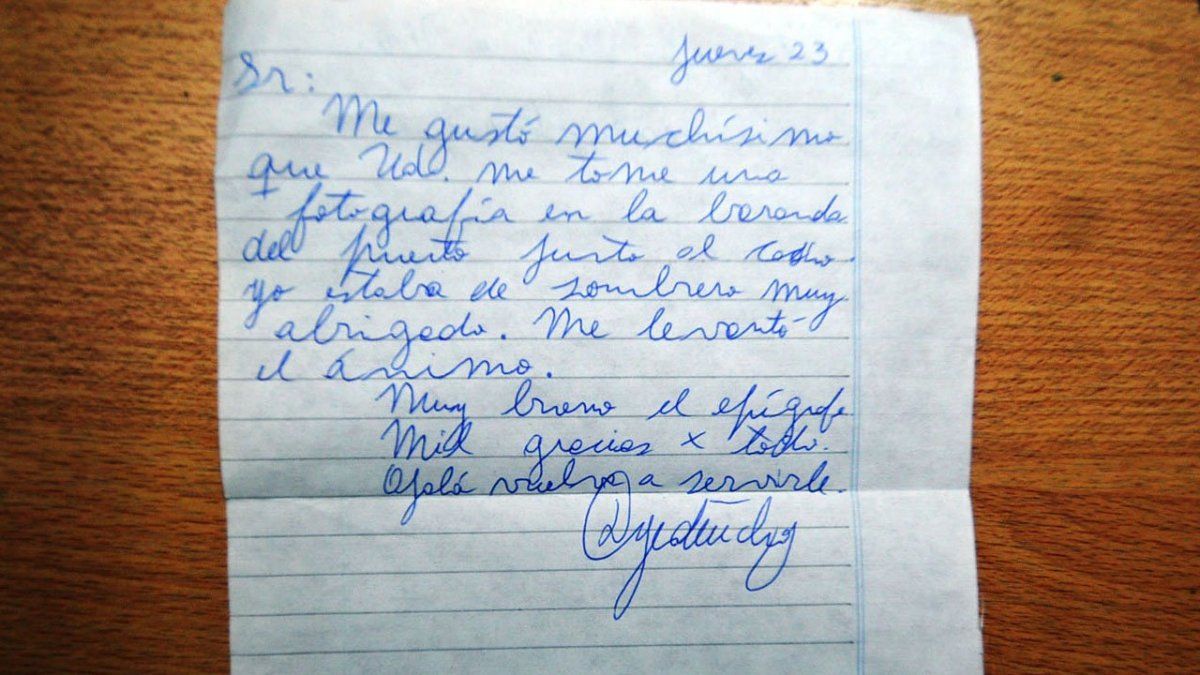 Jueves 23
Sr:
Me gustó muchísimo
que Ud. me tome una
fotografía en la baranda
del puerto justo al
yo estaba de sombrero muy
abrigado. Me levantó
el ánimo.
Muy bueno el epígrafe
Mil gracias x todo.
Ojalá vuelva a servirle.